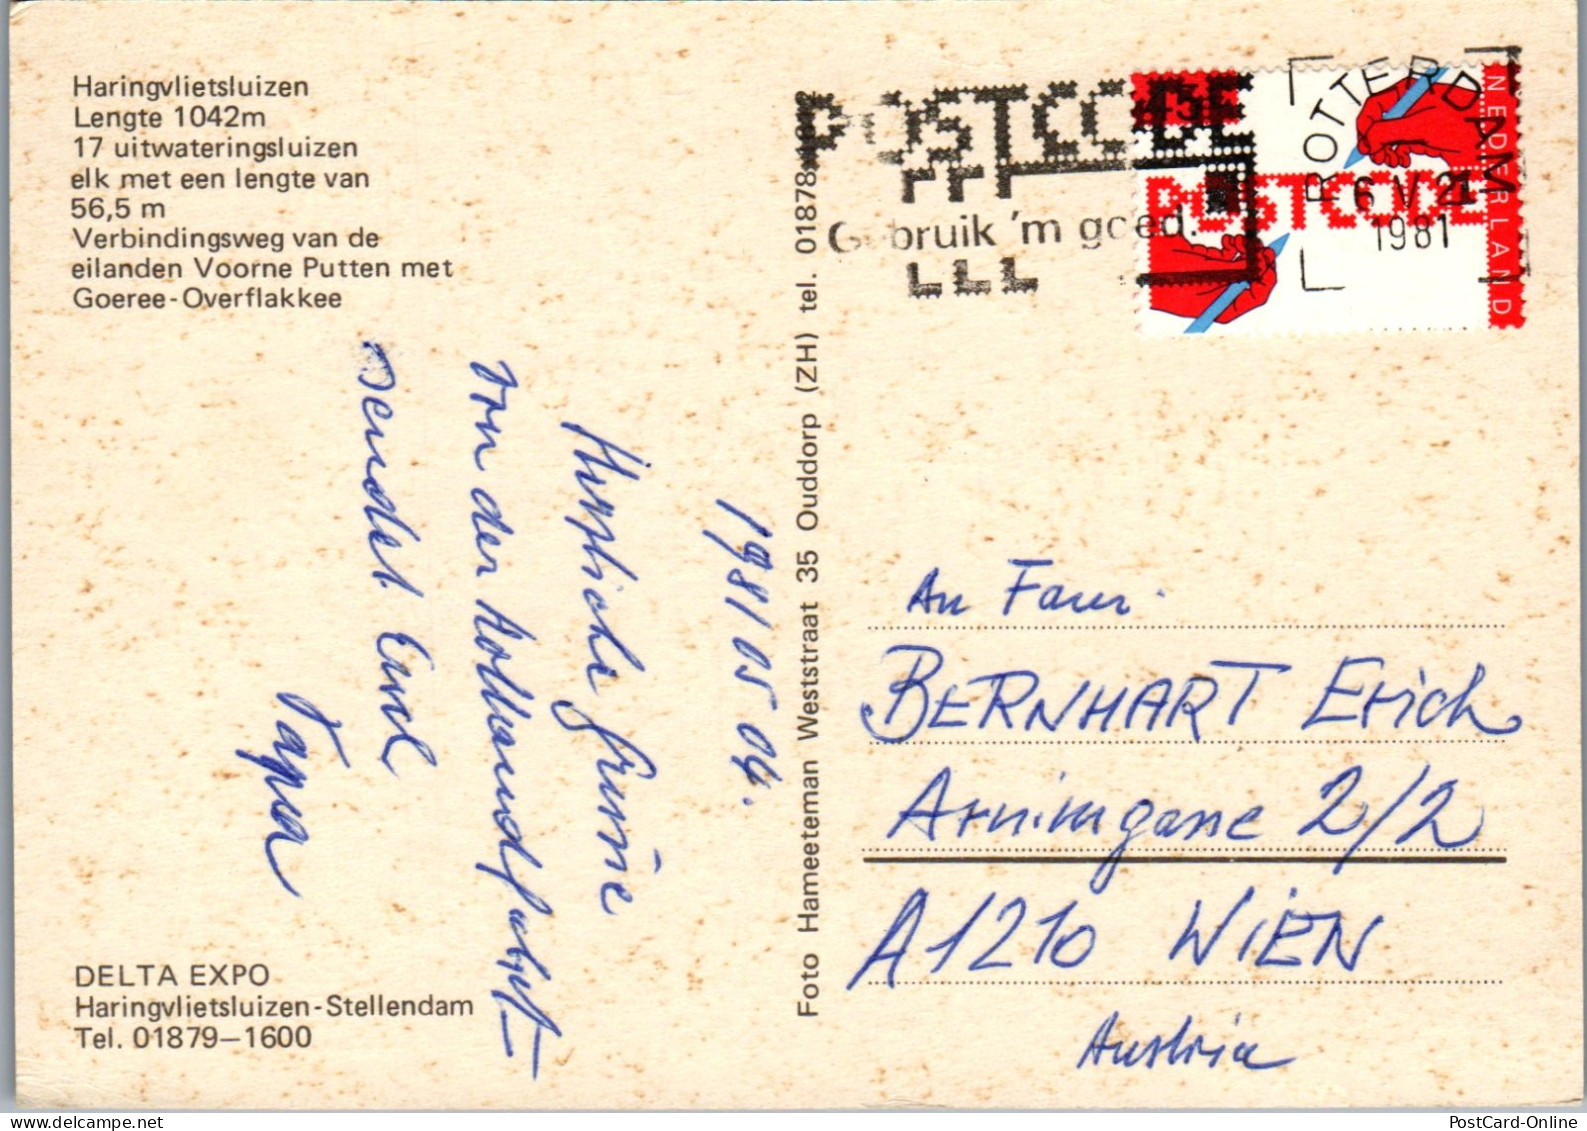 Haringvlietsluizen
Lengte 1042m
17 uitwateringsluizen
elk met een lengte van
56,5 m
Verbindingsweg van de
eilanden Voorne Putten met
Goeree-Overflakkee
1981 05 04.
Herzliche Grüße
von der Hollandfahrt
sendet Euch
Papa
DELTA EXPO
Haringvlietsluizen-Stellendam
Tel. 01879–1600
Foto Hameeteman Weststraat 35 Ouddorp (ZH) tel. 01878
POSTCODE
Gebruik 'm goed.
ROTTERDAM
6 V 21
1981
POSTCODE
NEDERLAND
An Fam.
BERNHART Erich
Arnimgasse 2/2
A1210 WIEN
Austria
PostCard-Online